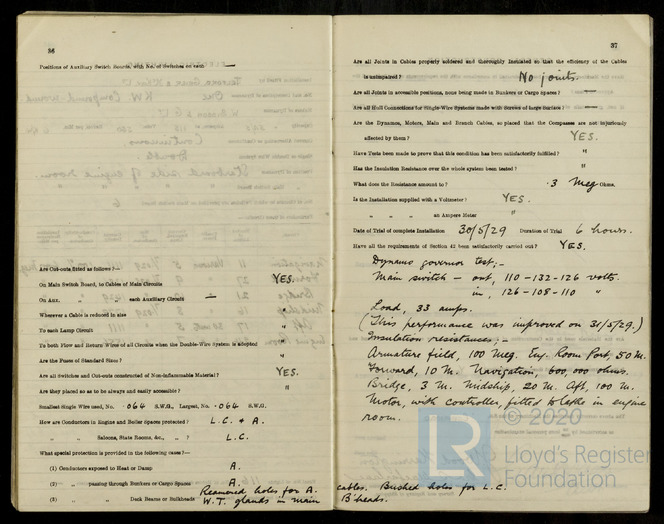 36
Positions of Auxiliary Switch Boards, with No. of Switches on each —
Are Cut-outs fitted as follows?—
On Main Switch Board, to Cables of Main Circuits YES.
On Aux. " " each Auxiliary Circuit —
Wherever a Cable is reduced in size "
To each Lamp Circuit "
To both Flow and Return Wires of all Circuits when the Double-Wire System is adopted "
Are the Fuses of Standard Sizes? "
Are all Switches and Cut-outs constructed of Non-inflammable Material? YES.
Are they placed so as to be always and easily accessible? "
Smallest Single Wire used, No. .064 S.W.G., Largest, No. .064 S.W.G.
How are Conductors in Engine and Boiler Spaces protected? L.C. & A.
" " Saloons, State Rooms, &c., " ? L.C.
What special protection is provided in the following cases?—
(1) Conductors exposed to Heat or Damp A.
(2) " passing through Bunkers or Cargo Spaces A.
(3) " " Deck Beams or Bulkheads Reamered holes for A. cables. Bushed holes for L.C.
W.T. glands in main B'heads.
37
Are all Joints in Cables properly soldered and thoroughly Insulated so that the efficiency of the Cables
is unimpaired? No joints.
Are all Joints in accessible positions, none being made in Bunkers or Cargo Spaces? —
Are all Hull Connections for Single-Wire Systems made with Screws of large surface? —
Are the Dynamos, Motors, Main and Branch Cables, so placed that the Compasses are not injuriously
affected by them? YES.
Have Tests been made to prove that this condition has been satisfactorily fulfilled? "
Has the Insulation Resistance over the whole system been tested? "
What does the Resistance amount to? .3 Meg Ohms.
Is the Installation supplied with a Voltmeter? YES.
" " " an Ampere Meter "
Date of Trial of complete Installation 30/5/29 Duration of Trial 6 hours.
Have all the requirements of Section 42 been satisfactorily carried out? YES.
Dynamo governor test;—
Main switch – out, 110–132–126 volts.
in, 126–108–110 "
Load, 33 amps.
(This performance was improved on 31/5/29.)
Insulation resistances;—
Armature field, 100 Meg. Eng. Room Port, 50 M.
Forward, 10 M. Navigation, 600,000 ohms.
Bridge, 3 M. Midship, 20 M. Aft, 100 M.
Motor, with controller, fitted to lathe in engine
room.
© 2020
LR
Lloyd's Register
Foundation